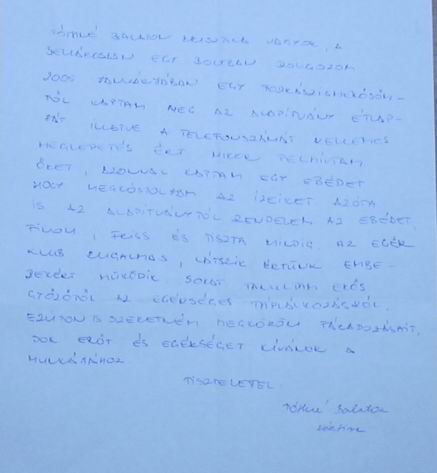 TÓTHNÉ BALATON KRISZTINA VAGYOK, A
BELVÁROSBAN EGY BOLTBAN DOLGOZOM
2005 JANUÁRJÁBAN EGY TORNÁSZISMERŐSÖM-
TŐL KAPTAM MEG AZ ALAPÍTVÁNY ÉTLAP-
JÁT ILLETVE A TELEFONSZÁMÁT KELLEMES
MEGLEPETÉS ÉRT MIKOR FELHÍVTAM
ŐKET, AZONNAL KAPTAM EGY EBÉDET
HOGY MEGKÓSTOLJAM AZ ÍZEIKET AZÓTA
IS AZ ALAPÍTVÁNYTÓL RENDELEM AZ EBÉDET,
FINOM, FRISS ÉS TISZTA MINDIG. AZ EGÉR
KLUB RUGALMAS, LÁTSZIK ÉRTÜNK EMBE-
REKÉRT MŰKÖDIK. SOKAT TANULTAM ERŐS
GYŐZŐTŐL AZ EGÉSZSÉGES TÁPLÁLKOZÁSRÓL.
EZÚTON IS SZERETNÉM MEGKÖSZÖNI FÁRADOZÁSAIT,
SOK ERŐT ÉS EGÉSZSÉGET KÍVÁNOK A
MUNKÁJÁHOZ
TISZTELETTEL:
Tóthné